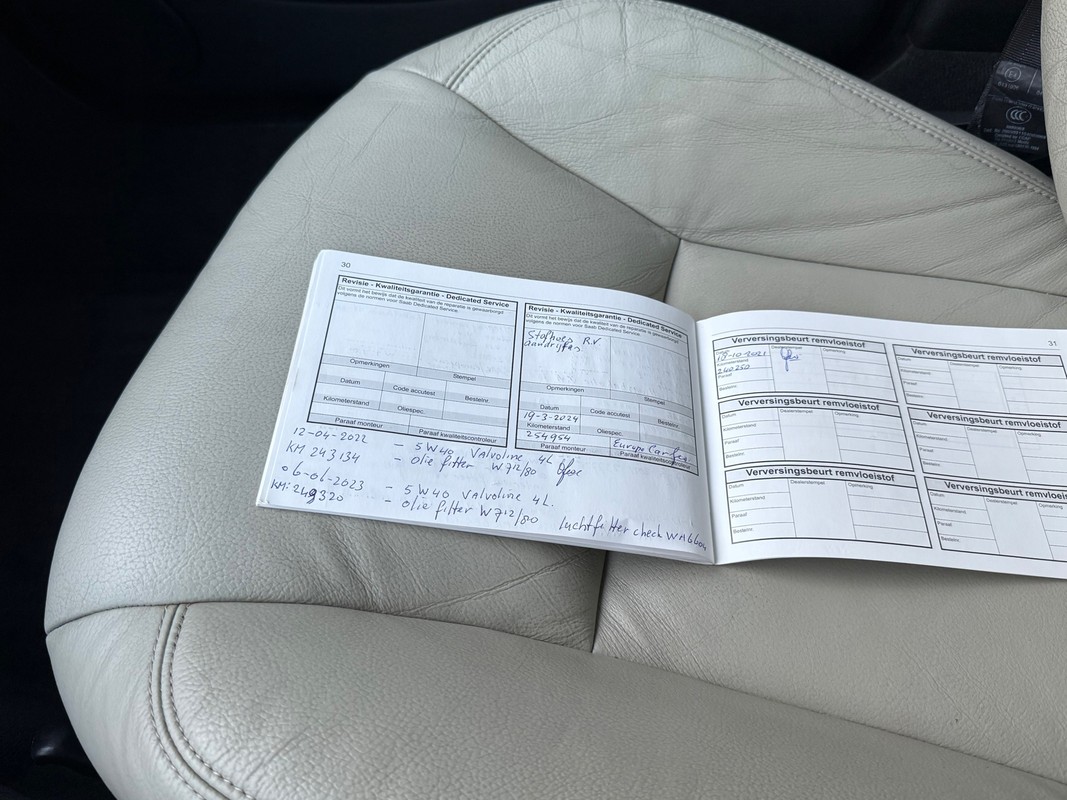 30
Revisie - Kwaliteitsgarantie - Dedicated Service
Dit vormt het bewijs dat de kwaliteit van de reparatie is gewaarborgd
volgens de normen voor Saab Dedicated Service.
Opmerkingen
Stempel
Datum
Code accutest
Bestelnr.
Kilometerstand
Oliespec.
Paraaf monteur
Paraaf kwaliteitscontroleur
Revisie - Kwaliteitsgarantie - Dedicated Service
Dit vormt het bewijs dat de kwaliteit van de reparatie is gewaarborgd
volgens de normen voor Saab Dedicated Service.
Stofhoes R.V
aandrijfas.
Opmerkingen
Stempel
Datum
Code accutest
Bestelnr.
19-3-2024
Kilometerstand
Oliespec.
254954
Paraaf monteur
Paraaf kwaliteitscontroleur
12-04-2022 - 5W40 Valvoline 4L
KM 243134 - olie filter W712/80
06-06-2023 - 5W40 Valvoline 4L.
KM: 249320 - olie filter W712/80 luchtfilter check
31
Verversingsbeurt remvloeistof
Datum
Dealerstempel
Opmerking
18-10-2021
Kilometerstand
240250
Paraaf
Bestelnr.
Verversingsbeurt remvloeistof
Datum
Dealerstempel
Opmerking
Kilometerstand
Paraaf
Bestelnr.
Verversingsbeurt remvloeistof
Datum
Dealerstempel
Opmerking
Kilometerstand
Paraaf
Bestelnr.
Verversingsbeurt remvloeistof
Datum
Dealerstempel
Opmerking
Kilometerstand
Paraaf
Bestelnr.
Verversingsbeurt remvloeistof
Datum
Dealerstempel
Opmerking
Kilometerstand
Paraaf
Bestelnr.
Verversingsbeurt remvloeis
Datum
Dealerstempel
Kilometerstand
Paraaf
Bestelnr.
CCC